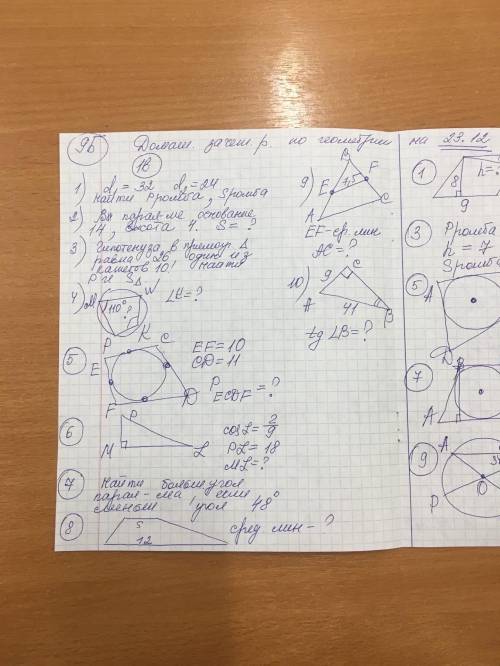 9Б Домаш. зачет. р. по геометрии на 23.12
1В
1) d₁ = 32 d₂ = 24
Найти Pромба, Sромба
2) В парал-ме основание
14, высота 4. S = ?
3) Гипотенуза в прямоуг. Δ
равна 26 один из
катетов 10! найти
P и SΔ
4) M W 110° ? K P
∠K = ?
5 E C F D
EF = 10
CD = 11
P ECDF = ?
6 P M L
cos L = 2/9
PL = 18
ML = ?
7 Найти больш угол
парал-ма, если
меньш угол 48°
8 5 12 сред лин - ?
9) B E 1,5 F A C
EF - ср. лин
AC = ?
10) 9 C A 41 B
tg ∠B = ?
1 8 9 h = ?
3 Pромба
h = 7
Sромб
5 A D
7 B A
9 A O P